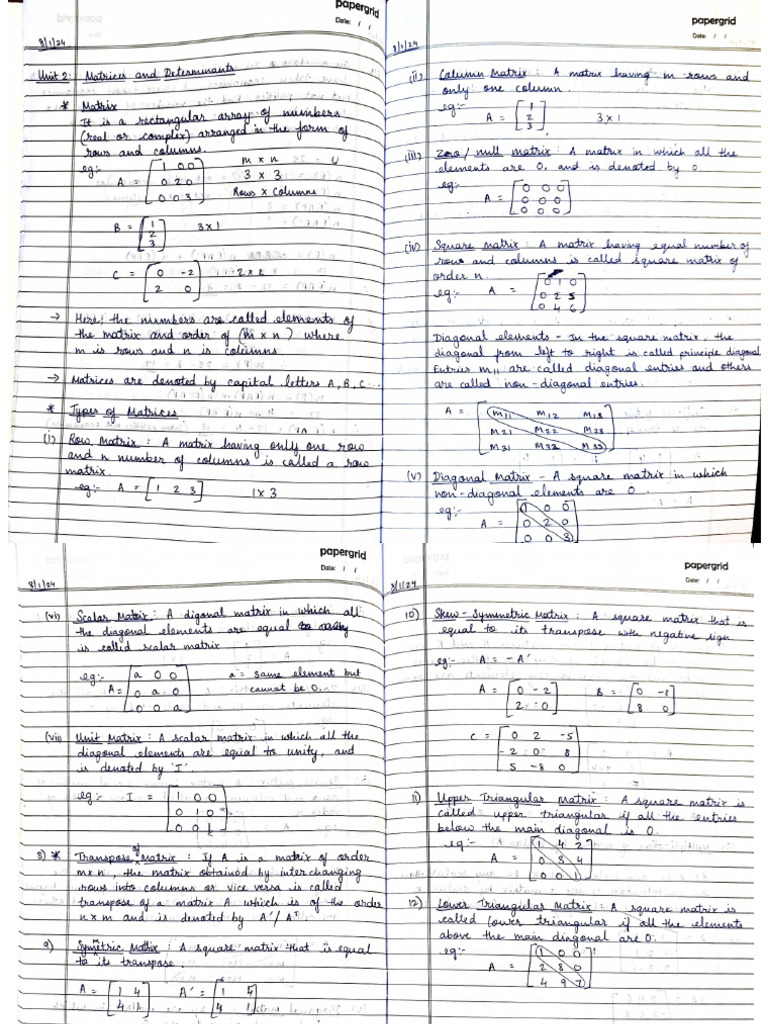 papergrid
Date: / /
8/1/24
Unit 2: Matrices and Determinants
* Matrix
It is a rectangular array of numbers
(real or complex) arranged in the form of
rows and columns.
eg:
A = [1 0 0
0 2 0
0 0 3]
m x n
3 x 3
Rows x Columns
B = [1
2
3] 3x1
C = [0 -2
2 0] 2x2
→ Here, the numbers are called elements of
the matrix and order of (m x n) where
m is rows and n is columns
→ Matrices are denoted by capital letters A, B, C...
* Types of Matrices
(i) Row Matrix : A matrix having only one row
and n number of columns is called a row
matrix.
eg:- A = [1 2 3] 1x3
papergrid
Date: / /
8/1/24
(ii) Column Matrix : A matrix having m rows and
only one column.
eg:-
A = [1
2
3] 3x1
(iii) Zero/null matrix : A matrix in which all the
elements are 0, and is denoted by 0
eg:-
A = [0 0 0
0 0 0
0 0 0]
(iv) Square matrix : A matrix having equal number of
rows and columns is called square matrix of
order n.
eg:- A = [0 1 0
0 2 5
0 4 6]
Diagonal elements - In the square matrix, the
diagonal from left to right is called principle diagonal
Entries m11 are called diagonal entries and others
are called non-diagonal entries.
A = [m11 m12 m13
m21 m22 m23
m31 m32 m33]
(v) Diagonal Matrix - A square matrix in which
non-diagonal elements are 0.
eg:-
A = [1 0 0
0 2 0
0 0 3]
papergrid
Date: / /
8/1/24
(vi) Scalar Matrix : A digonal matrix in which all
the diagonal elements are equal
is called scalar matrix
eg:-
A = [a 0 0
0 a 0
0 0 a]
a = same element but
cannot be 0.
(vii) Unit Matrix : A scalar matrix in which all the
diagonal elements are equal to unity, and
is denoted by 'I'.
eg:- I = [1 0 0
0 1 0
0 0 1]
8) * Transpose of Matrix : If A is a matrix of order
mxn, the matrix obtained by interchanging
rows into columns or vice versa is called
transpose of a matrix A which is of the order
nxm and is denoted by A'/Aᵀ
9) Symmetric Matrix : A square matrix that is equal
to its transpose.
A = [1 4
4 1] A' = [1 4
4 1]
papergrid
Date: / /
8/1/24
10) Skew-Symmetric Matrix : A square matrix that is
equal to its transpose with negative sign.
eg:- A = -A'
A = [0 -2
2 0] B = [0 -8
8 0]
C = [0 2 -5
-2 0 8
5 -8 0]
11) Upper Triangular Matrix : A square matrix is
called upper triangular if all the entries
below the main diagonal is 0.
eg:-
A = [1 4 2
0 3 4
0 0 1]
12) Lower Triangular Matrix : A square matrix is
called lower triangular if all the elements
above the main diagonal are 0.
eg:-
A = [1 0 0
2 8 0
4 9 7]